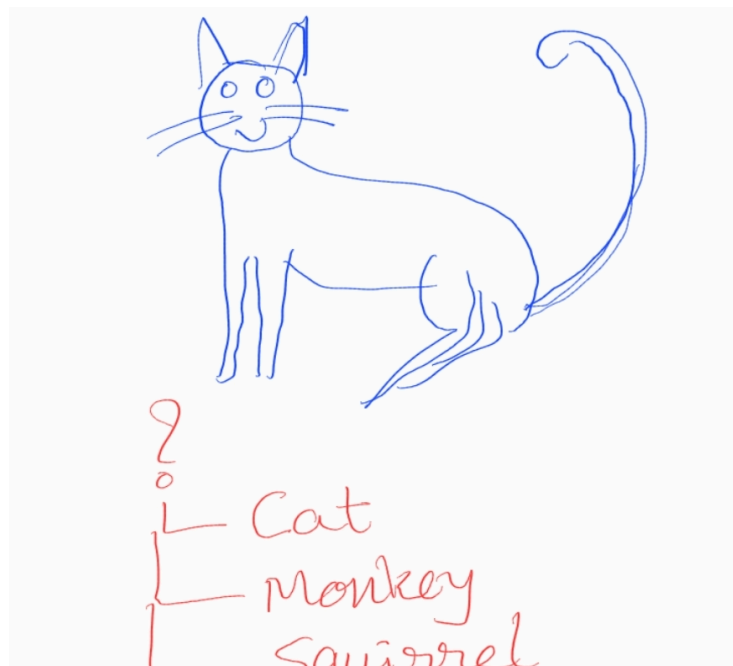 ?
Cat
Monkey
Squirrel